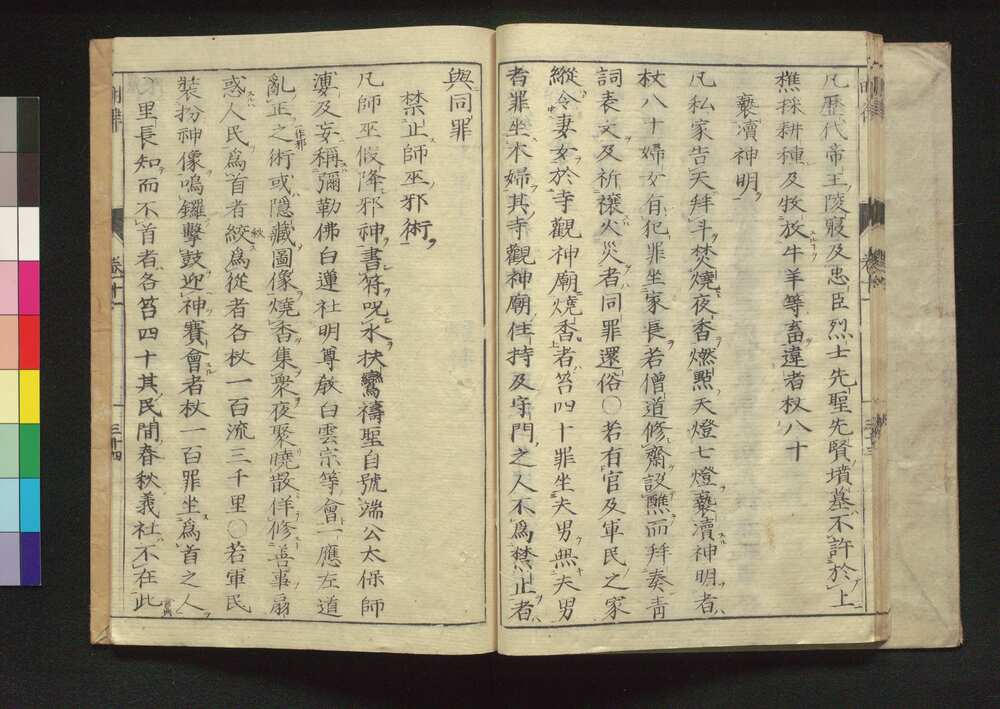 凡歷代帝王陵寢及忠臣烈士先聖先賢墳墓不許於上
樵採耕種及牧放牛羊等畜違者杖八十
褻瀆神明
凡私家告天拜斗焚燒夜香燃點天燈七燈褻瀆神明者
杖八十婦女有犯罪坐家長若僧道修齋設醮而拜奏青
詞表文及祈禳火災者同罪還俗○若有官及軍民之家
縱令妻女於寺觀神廟燒香者笞四十罪坐夫男無夫男
者罪坐本婦其寺觀神廟住持及守門之人不為禁止者
與同罪
禁止師巫邪術
凡師巫假降邪神書符咒水扶鸞禱聖自號端公太保師
婆及妄稱彌勒佛白蓮社明尊教白雲宗等會一應左道
亂正之術或隱藏圖像燒香集眾夜聚曉散佯修善事扇
惑人民為首者絞為從者各杖一百流三千里○若軍民
裝扮神像鳴鑼擊鼓迎神賽會者杖一百罪坐為首之人
○里長知而不首者各笞四十其民間春秋義社不在此
卷十一
三十四